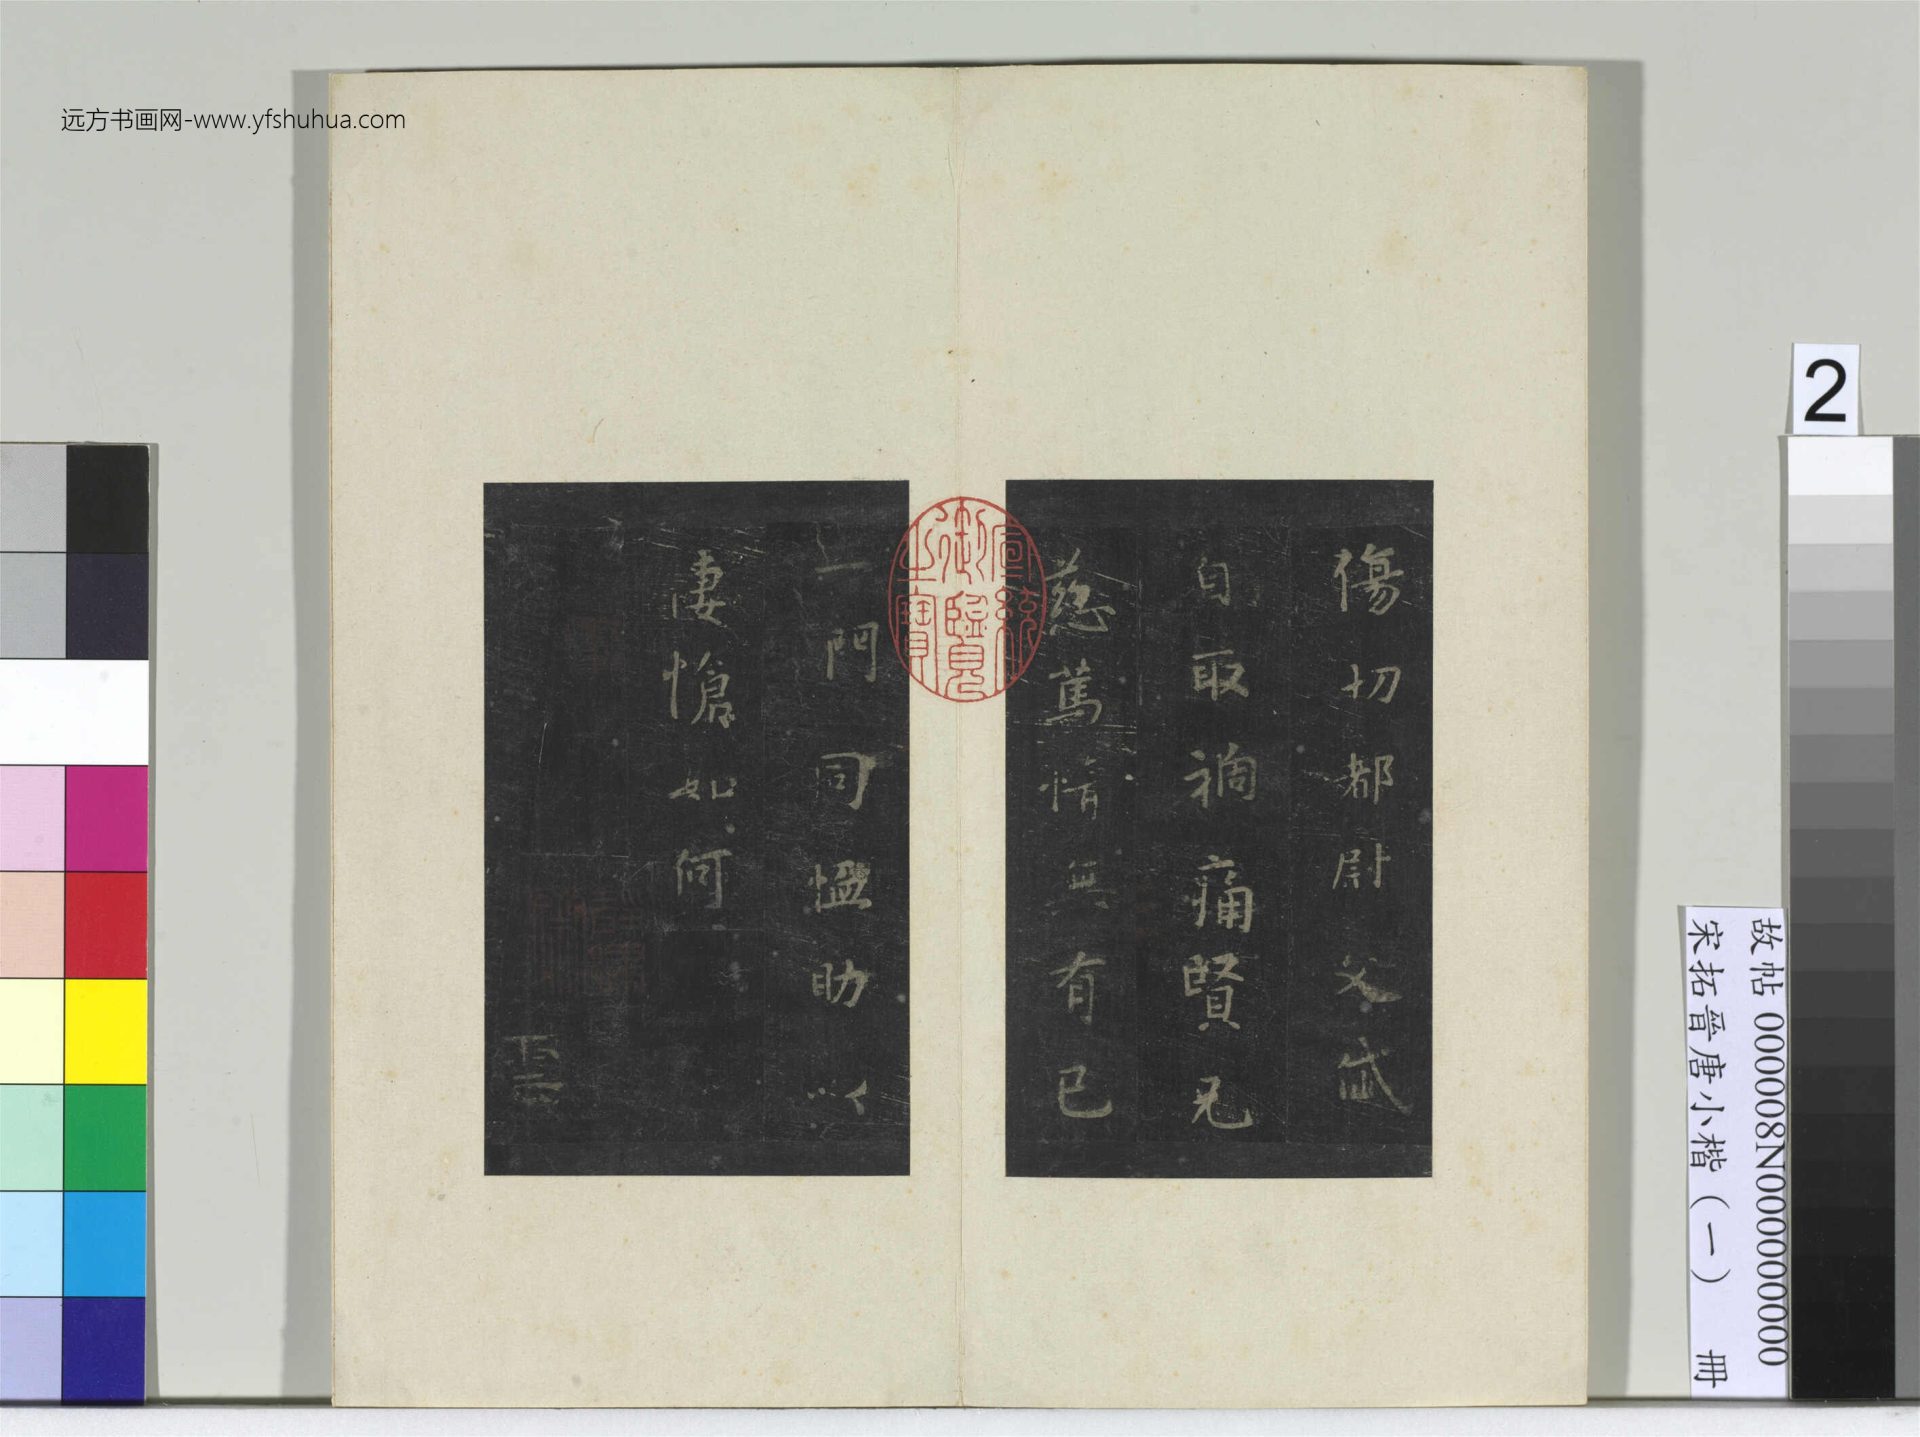 远方书画网-www.yfshuhua.com
2
傷切都尉文岱
自取禍痛賢兄
慈篤情無有已
宣統御覽之寶
一門同恤助以
凄愴如何
故帖 000008N00000000000
宋拓晋唐小楷（一） 冊